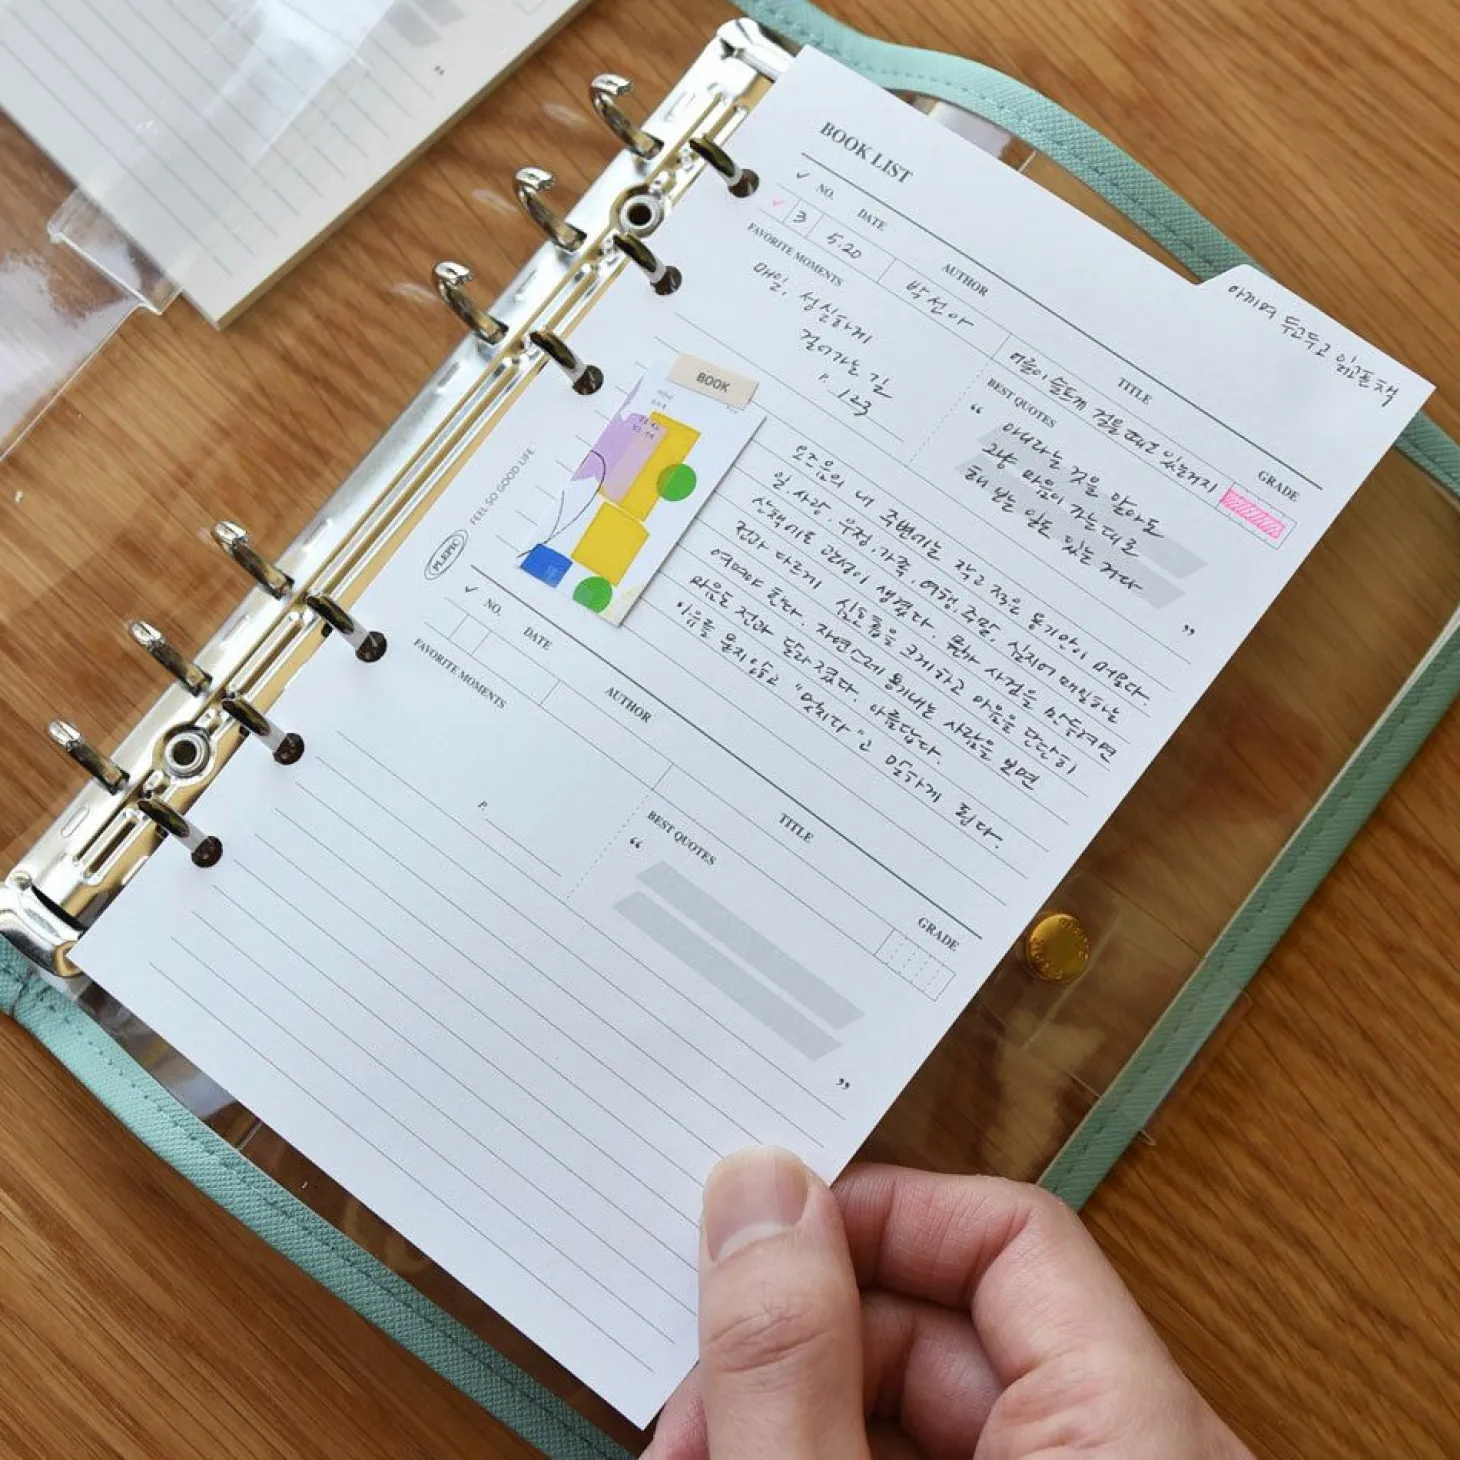 BOOK LIST
아끼며 두고두고 읽고픈 책
✓ NO. DATE AUTHOR TITLE GRADE
✓ 3 5.20 박선아 어른이 슬프게 걸을 때도 있는거지
FAVORITE MOMENTS
매일, 성실하게
걸어가는 길
P. 123
BEST QUOTES
“
아니라는 것을 알아도
그냥 마음이 가는대로
해 보는 일도 있는 거다
”
BOOK
요즘의 내 주변에는 작고 작은 용기만이 머문다.
일. 사랑. 우정. 가족. 여행. 주말. 심지어 매일하는
산책에도 관성이 생겼다. 뭔가 사건을 만들려면
전과 다르게 심호흡을 크게하고 마음을 단단히
여며야 한다. 자연스레 용기내는 사람을 보면
마음도 전과 달라졌다. 아름답다.
이유를 묻지않고 "멋지다"고 말하게 된다.
PLEPIC FEEL SO GOOD LIFE
✓ NO. DATE AUTHOR TITLE GRADE
FAVORITE MOMENTS
P.
BEST QUOTES
“
”